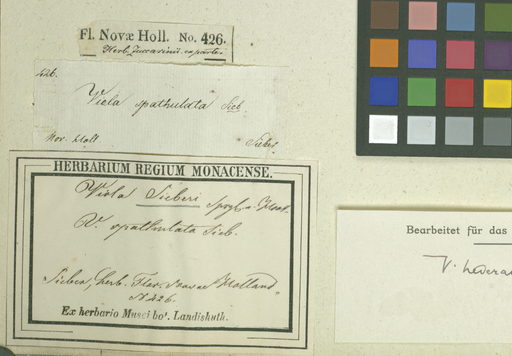 Fl. Novæ Holl. No. 426.
Herb. Zuccarinii
426.
Viola spathulata Sieb.
Nov. Holl
Sieber
HERBARIUM REGIUM MONACENSE.
Viola Sieberi Sprgl.
V. spathulata Sieb.
Sieber, herb. Flor. Novae Holland.
N. 426.
Ex herbario Musei bot. Landishuth.
Bearbeitet für das
V. hedera